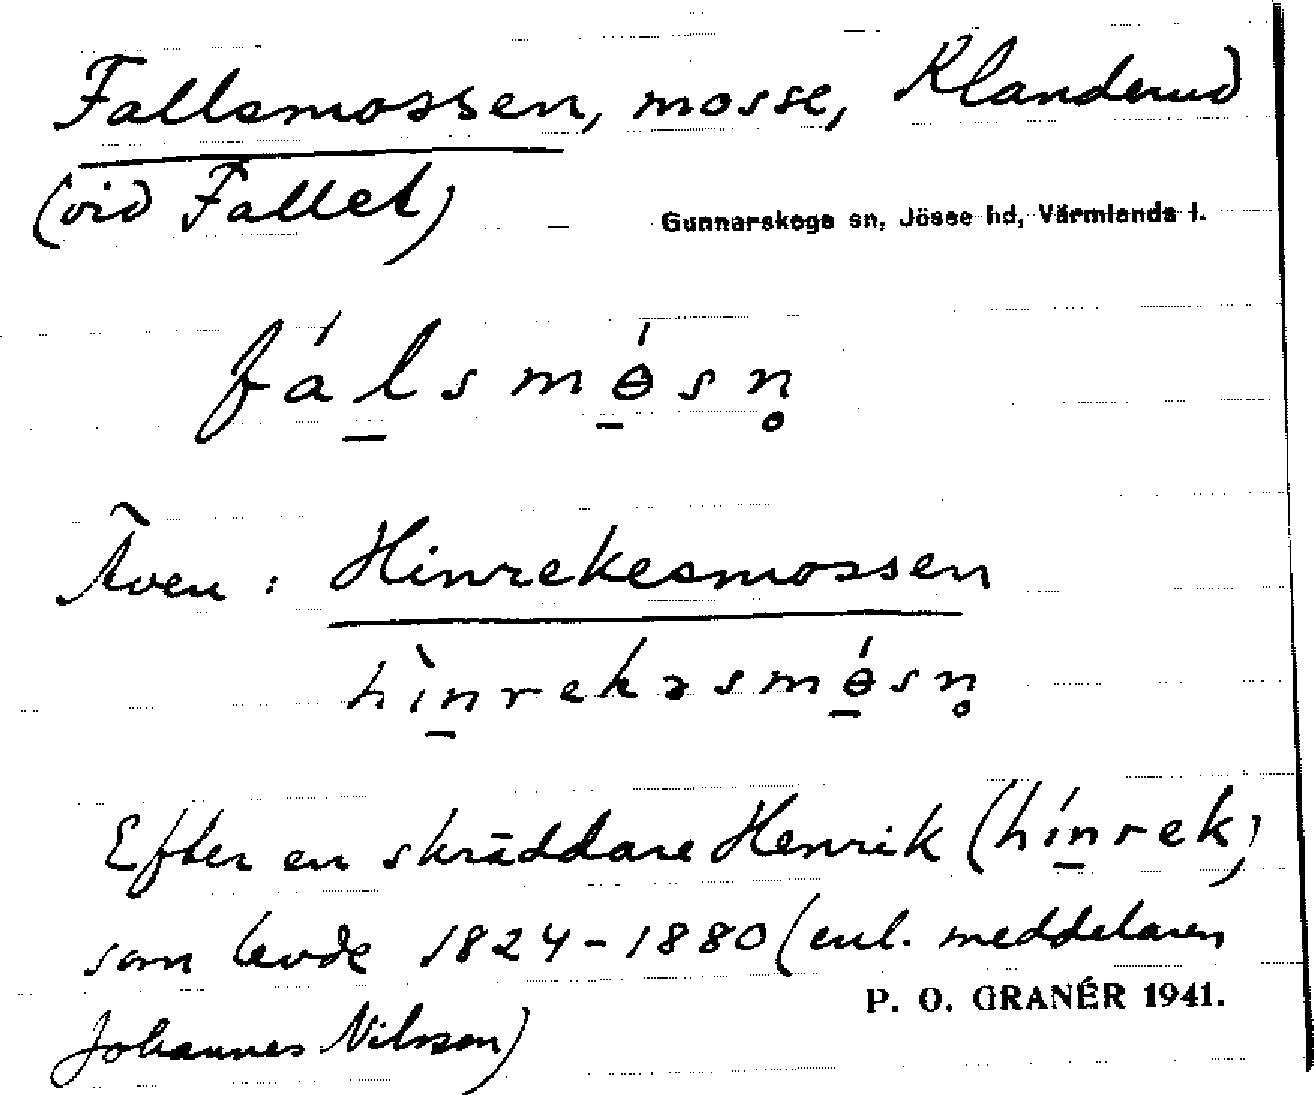 Fallsmossen, mosse, Klanderud
(vid Fallet)
Gunnarskogs sn, Jösse hd, Värmlands l.
fá̱lsmɵ̱́sn̥
Även: Hinrekesmossen
hìṉrekəsmɵ̱́sn̥
Efter en skräddare Henrik (híṉrek)
som levde 1824-1880 (enl. meddelaren
P. O. GRANÉR 1941.
Johannes Nilsson)